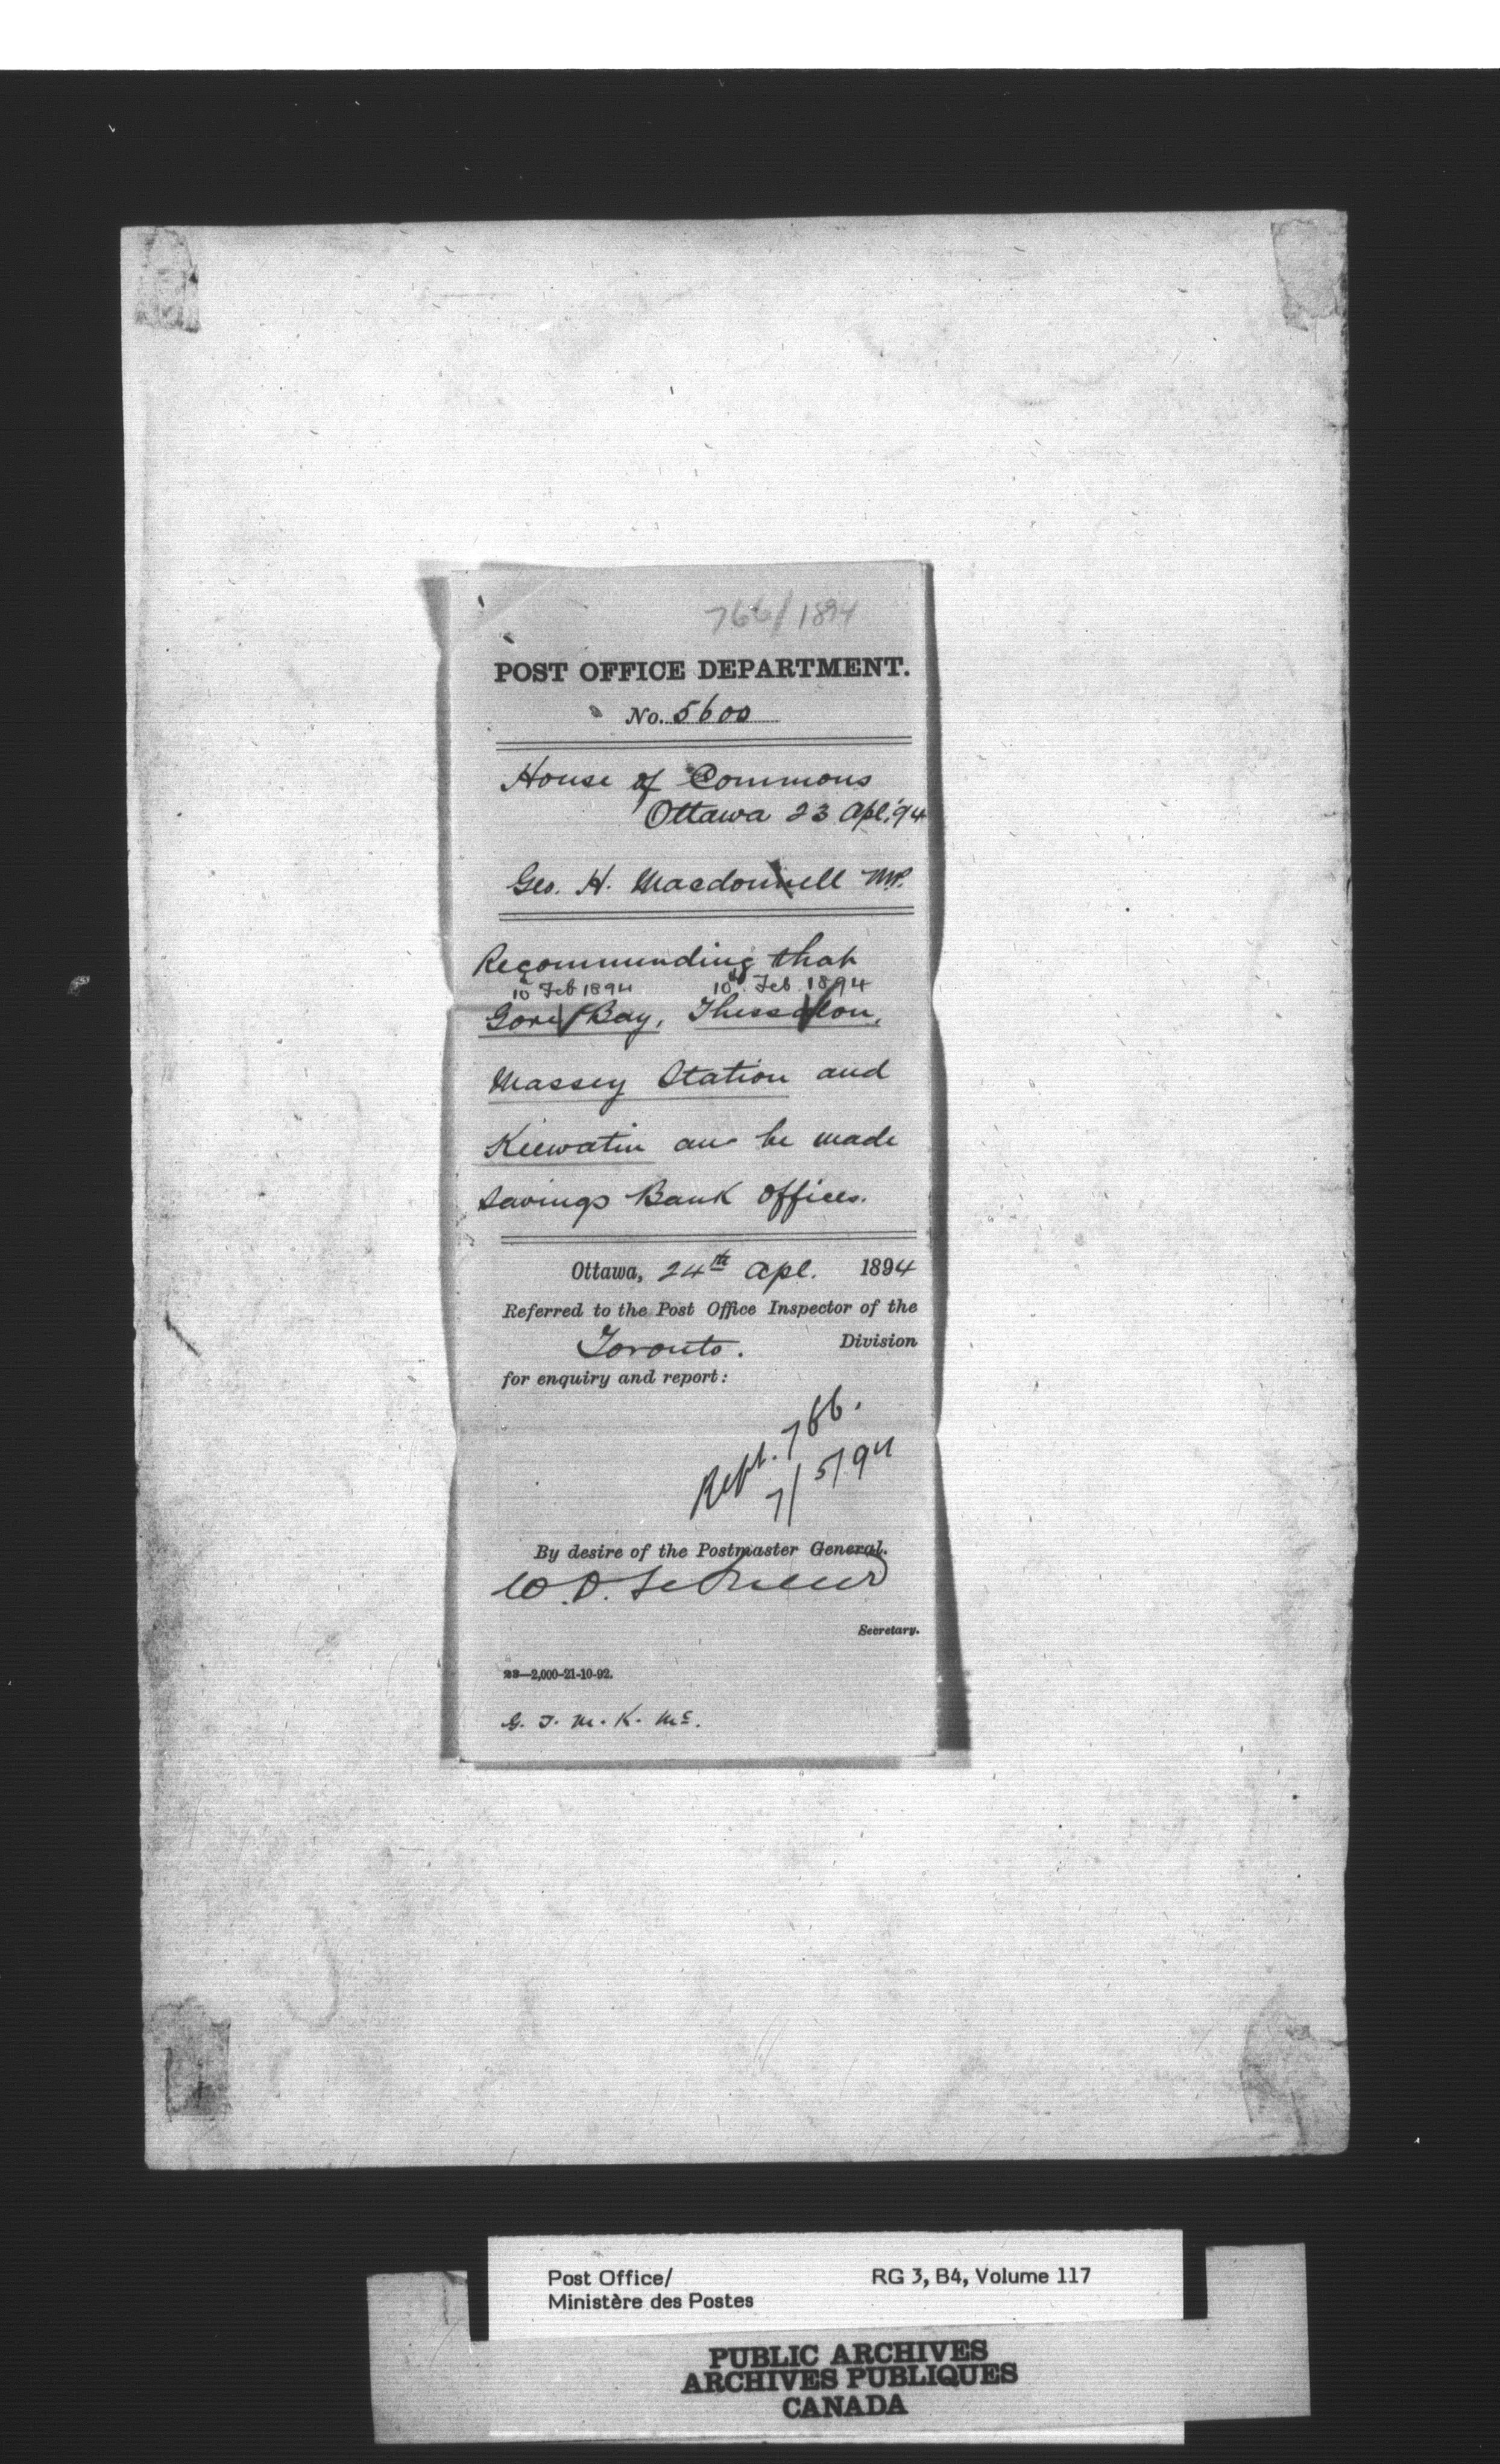 766/1894
POST OFFICE DEPARTMENT.
No. 5600
House of Commons
Ottawa 23 Apl. '94
Geo. H. Macdonnell M.P.
Recommending that
10 Feb 1894 10 Feb. 1894
Gore Bay, Thessalon,
Massey Station and
Keewatin be made
Savings Bank Offices.
Ottawa, 24th Apl. 1894
Referred to the Post Office Inspector of the
Toronto. Division
for enquiry and report:
Rept. 766.
7/5/94
By desire of the Postmaster General.
W.D. LeSueur
Secretary.
23—2,000-21-10-92.
G. T. M. K. Mc.
Post Office/ RG 3, B4, Volume 117
Ministère des Postes
PUBLIC ARCHIVES
ARCHIVES PUBLIQUES
CANADA